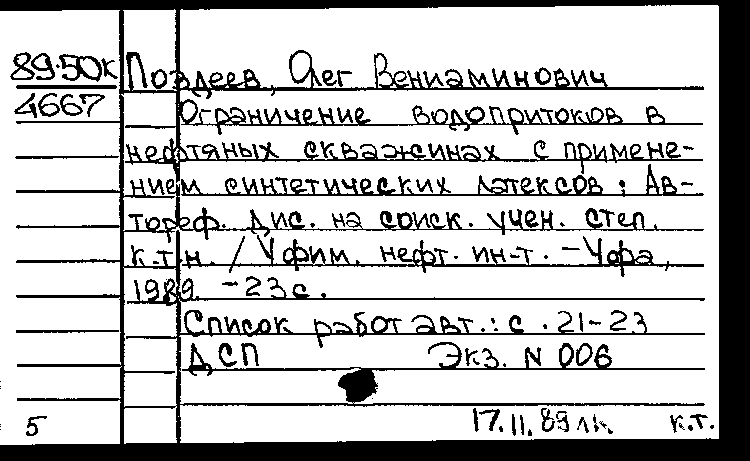 89-50к Поздеев, Олег Вениаминович
4667 Ограничение водопритоков в
нефтяных скважинах с примене-
нием синтетических латексов : Ав-
тореф. дис. на соиск. учен. степ.
к.т.н. / Уфим. нефт. ин-т. – Уфа,
1989. – 23 с.
Список работ авт.: с. 21-23
ДСП Экз. N 006
5 17.11.89 лк. к.т.